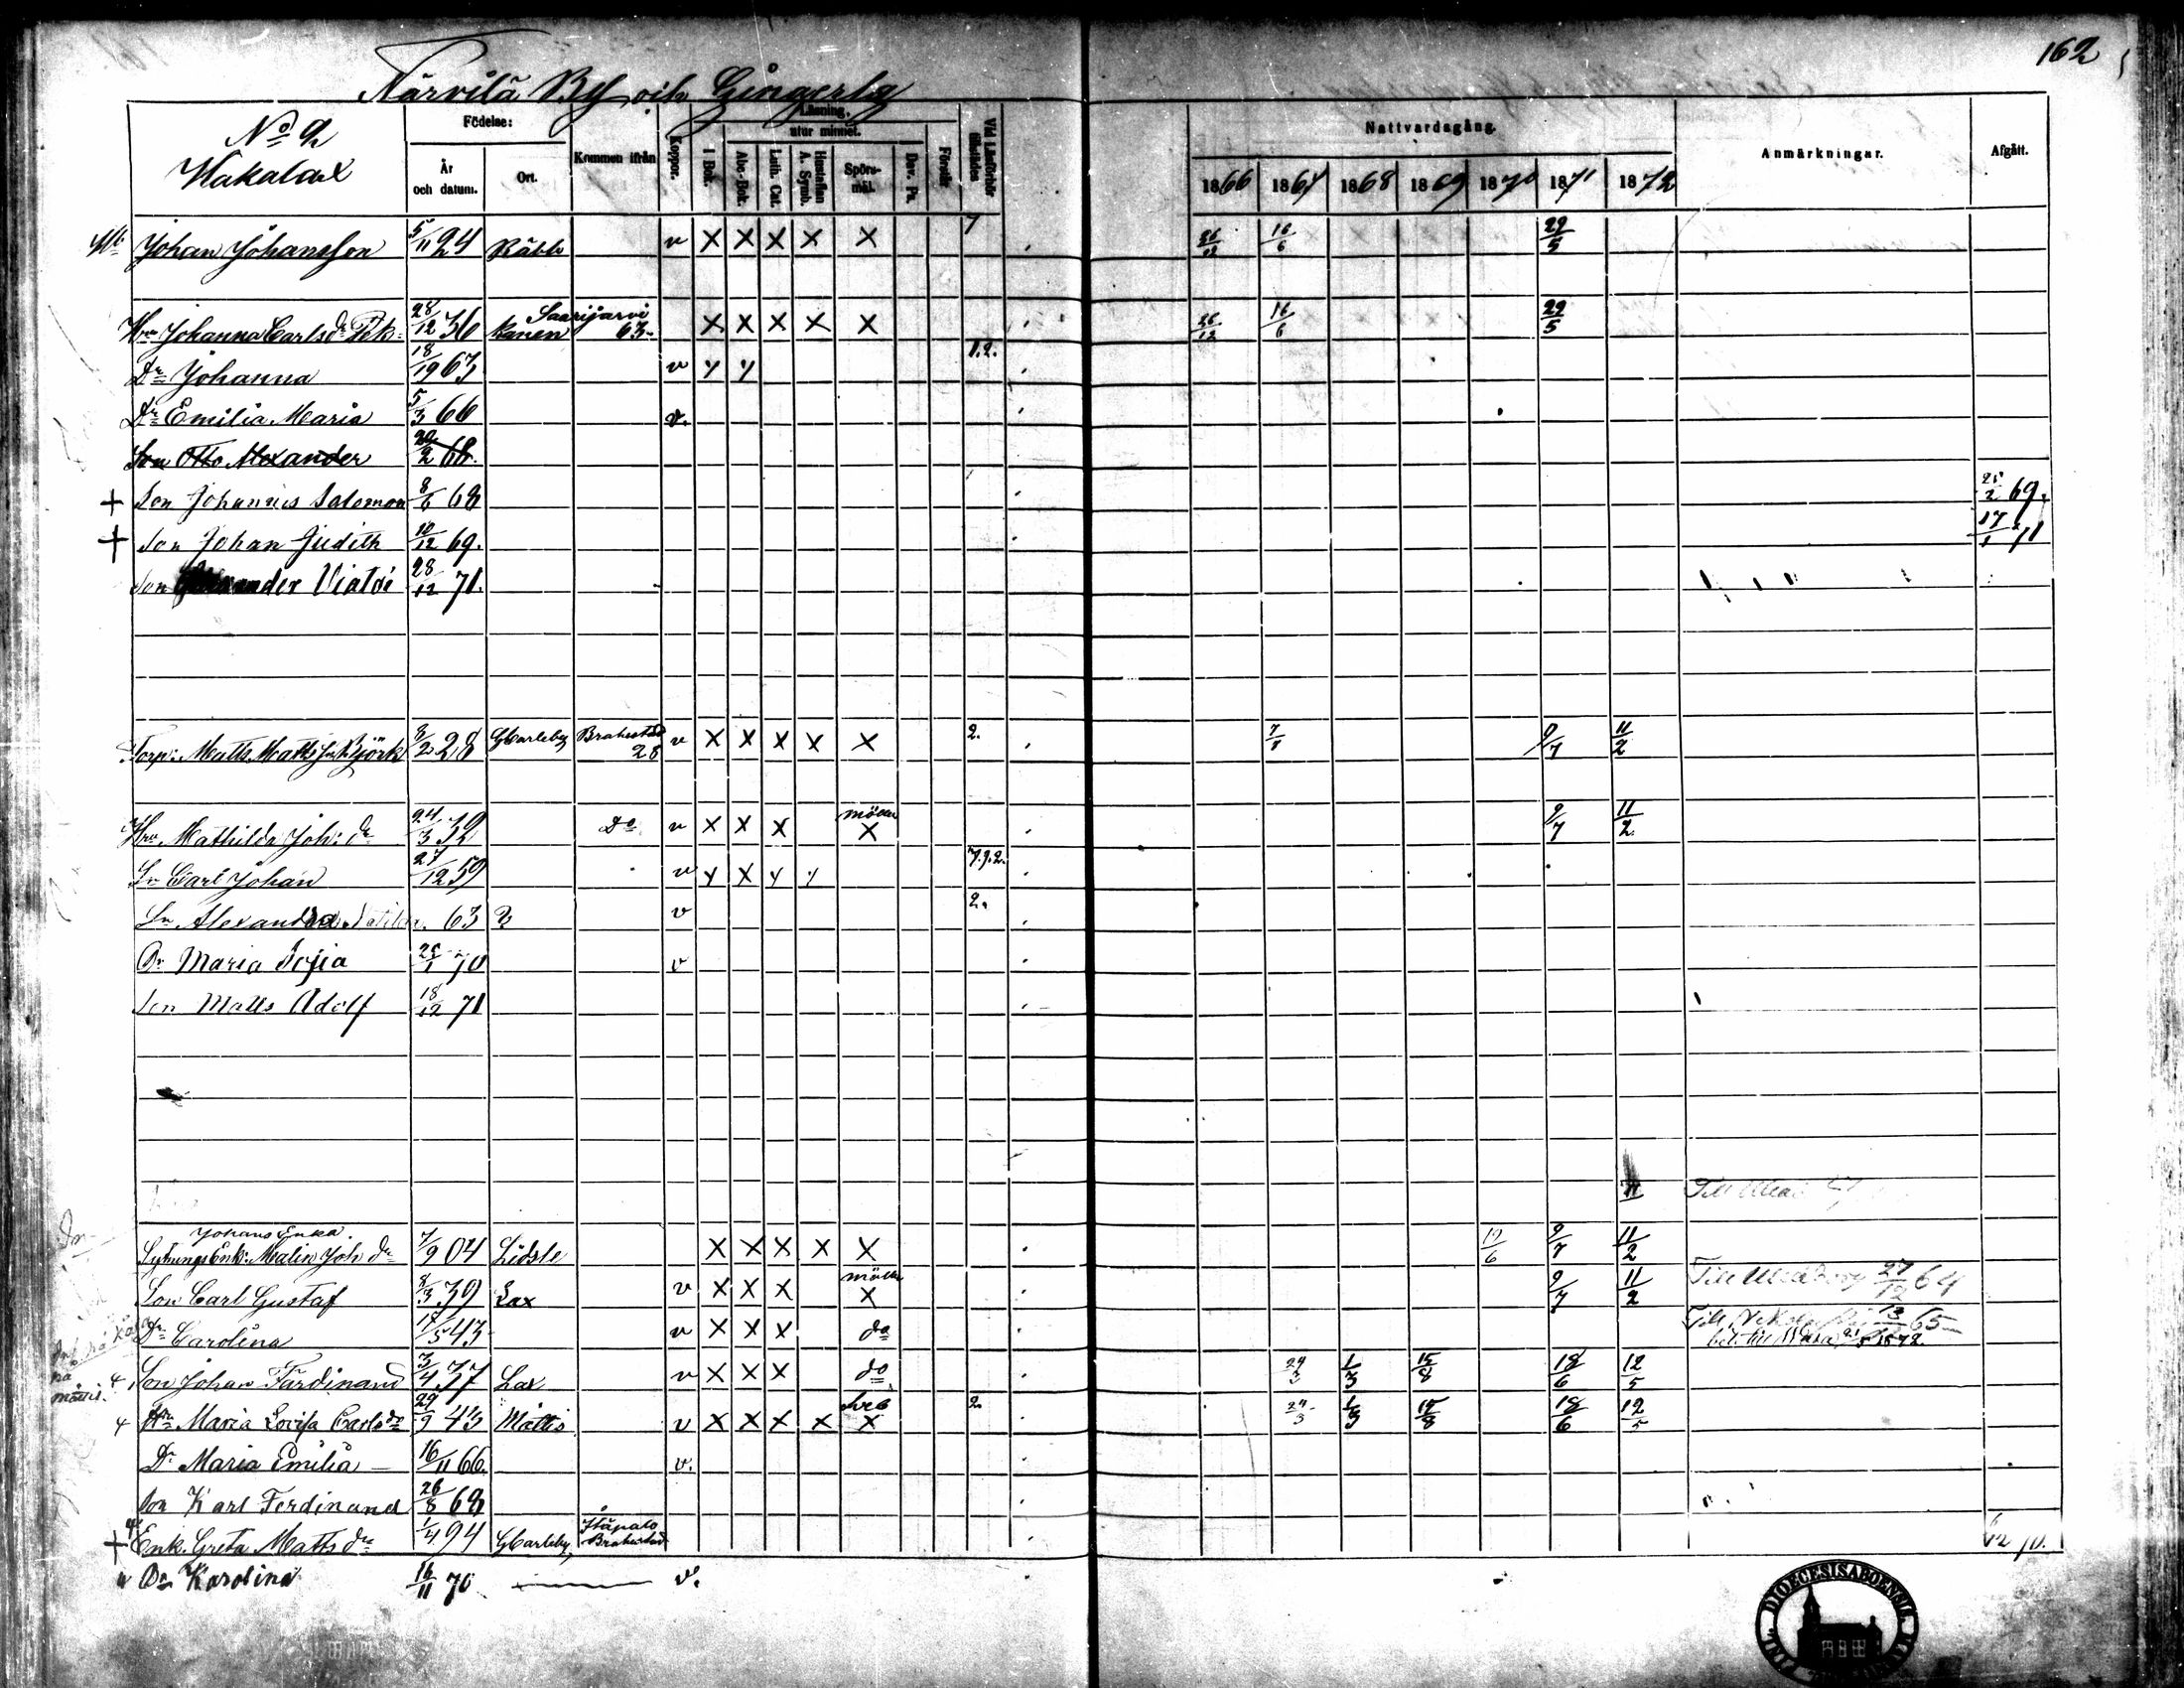 162
Närvilä By och Gingerby
No 9
Wakalax
Födelse:
År och datum.
Ort.
Kommen ifrån
Koppor.
Läsning.
utur minnet.
I Bok.
Abc-Bok.
Luth. Cat.
Hustaflan A. Symb.
Spörs-mål.
Dav. Ps.
Förstår
Vid Läsförhör tillstädes
Nattvardsgång.
1866 1867 1868 1869 1870 1871 1872
Anmärkningar.
Afgått.
Johan Johansson 5/11 24 v X X X X X 7 26/12 16/6 29/5
Hu Johanna Carlsdr Pek-kanen 28/12 36 Saarijärvi 63 X X X X X 26/12 16/6 29/5
Dr Johanna 18/19 63 v 1.2.
Dr Emilia Maria 5/3 66 v.
Son Otto Alexander 20/2 68.
+ Son Johannes Salomon 8/6 68 25/2 69.
+ Son Johan Judith 10/12 69. 17/1 71
Son 28/12 71.
Torp. Matts Mattsson Björk 8/2 28 GCarleby Brahestad 28 v X X X X X 2. 7/8 9/7 11/2
Hu Mathilda Joh: dr 24/3 32 Do v X X X X 9/7 11/2
Sn Carl Johan 27/12 59 v 7.9.2.
Sn Alexandra 63 v 2.
Dr Maria Sofia 28/1 70 v
Son Matts Adolf 18/12 71
Johans Enka
Sytnings Enk: Malin Joh dr 7/9 04 Lidsle X X X X X 19/6 9/7 11/2
Son Carl Gustaf 8/3 39 Lax v X X X X 9/7 11/2 Till Uleåborg 27/12 64
Dr Carolina 17/5 43 v X X X do Till 13 65
1872.
Son Johan Ferdinand 3/4 37 Lax v X X X do 24/3 1/3 15/8 18/6 12/5
Hu Maria Lovisa Carlsdr 29/9 43 Mattis v X X X X X 2 24/3 1/3 15/8 18/6 12/5
Dr Maria Emilia 16/11 66 v.
Son Karl Ferdinand 26/8 68
+ Enk. Greta Matts dr 1/4 94 GCarleby Brahestad 6/12 70.
Dr Karolina 16/11 70 v.
DIOECESIS ABOENSIS